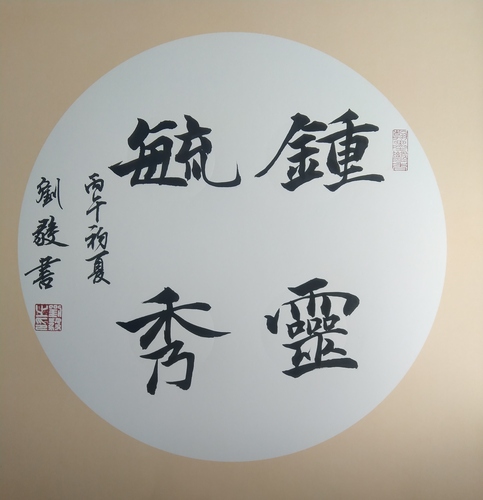 鍾靈
毓秀
丙午初夏
劉毅書